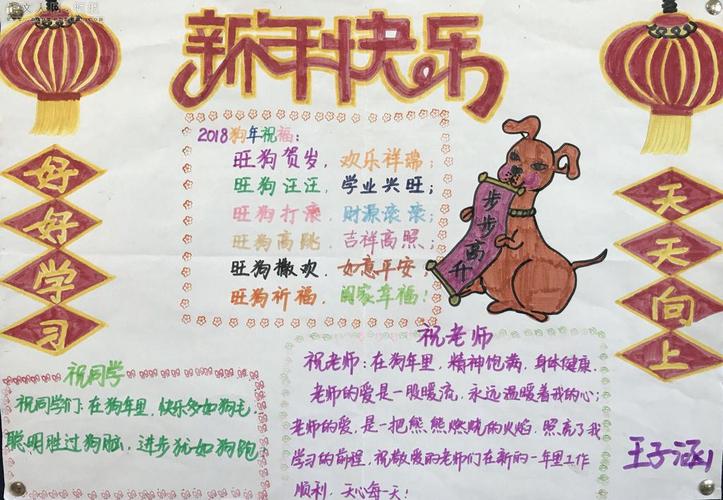 新年快乐
2018狗年祝福：
旺狗贺岁，欢乐祥瑞；
旺狗汪汪，学业兴旺；
旺狗打滚，财源滚滚；
旺狗高跳，吉祥高照；
旺狗撒欢，如意平安；
旺狗祈福，阖家幸福！
步步高升
好好学习
天天向上
祝同学
祝同学们：在狗年里，快乐多如狗毛，
聪明胜过狗脑，进步犹如狗跑
祝老师
祝老师：在狗年里，精神饱满，身体健康．
老师的爱是一股暖流，永远温暖着我的心；
老师的爱，是一把熊熊燃烧的火焰．照亮了我
学习的前程，祝敬爱的老师们在新的一年里工作
顺利，天心每天！
王子涵